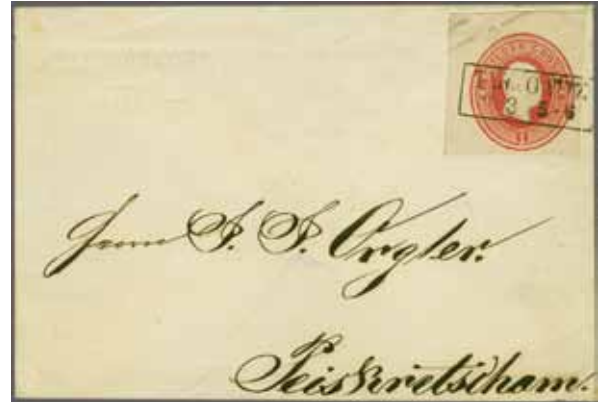 3 5-6
Herrn J. J. Orgler.
Peiskretscham.